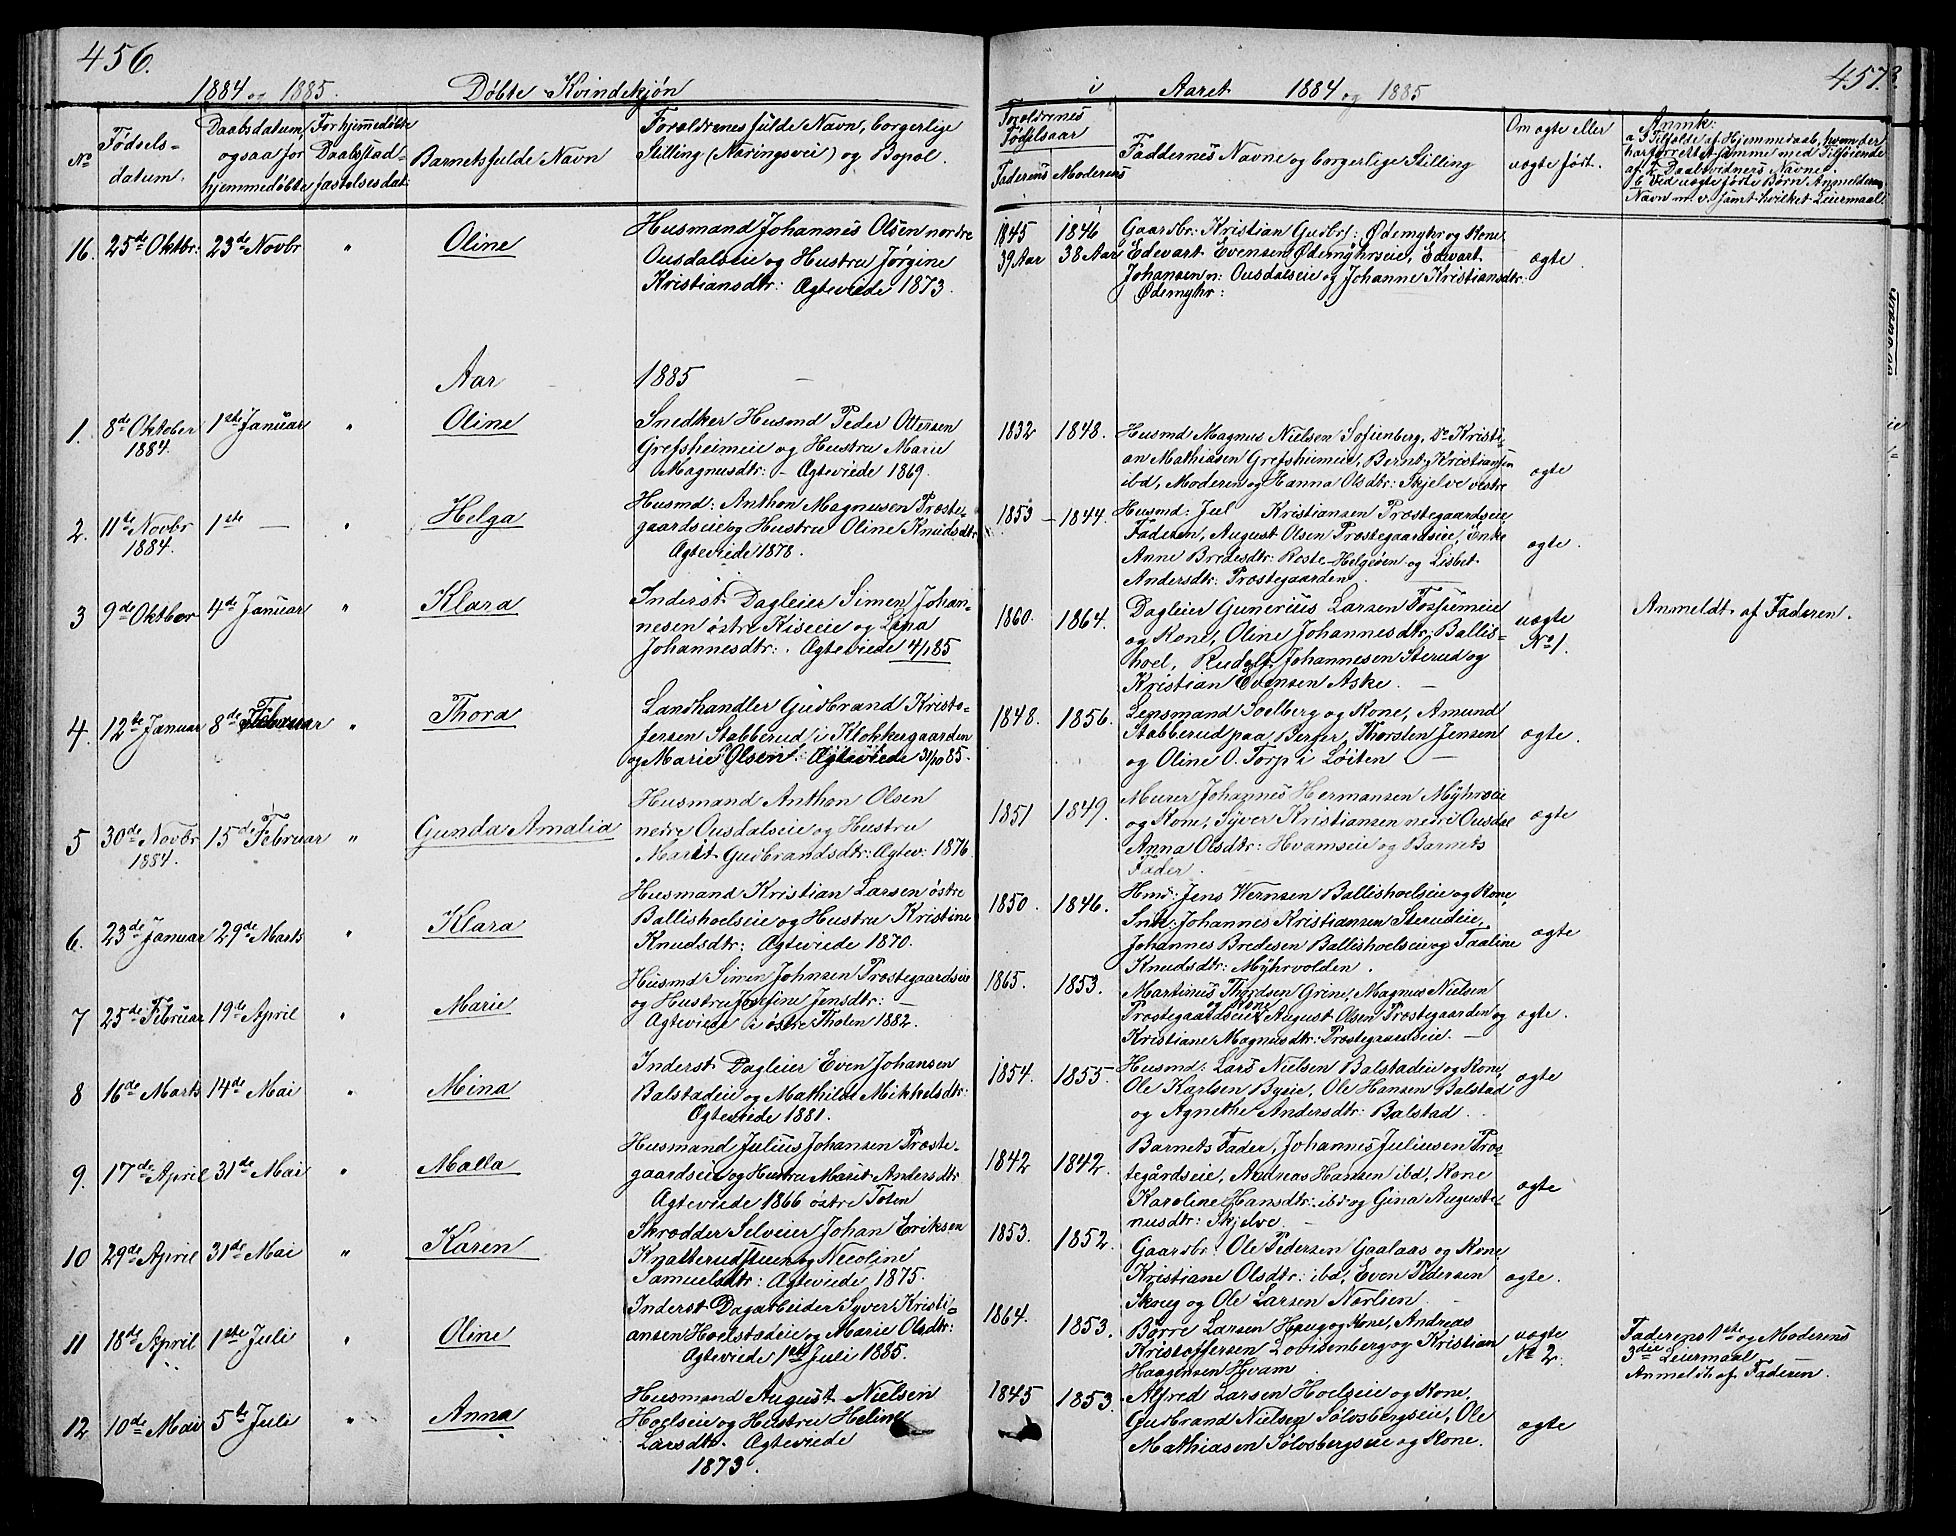 456.
1884 og 1885. Døbte Kvindekjøn
No
Fødsels-
datum.
Daabsdatum
ogsaa for
hjemmedøbte
For hjemmedøbte
Daabsstad-
fæstelsesdat.
Barnets fulde Navn
Forældrenes fulde Navn, borgerlige
Stilling (Næringsvei) og Bopæl.
16. 25de Oktbr: 23de Novbr " Oline
Husmand Johannes Olsen nordre
Ousdalseie og Hustru Jørgine
Kristiansdtr: Ægteviede 1873.
Aar 1885
1. 8de Oktober
1884. 1ste Januar " Oline
Snedker Husmd Peder Ottersen
Grefsheimeie og Hustru Marie
Magnusdtr: - Ægteviede 1869.
2. 11te Novbr
1884. 1ste — " Helga
Husmd: Anthon Magnusen Præste-
gaardseie og Hustru Oline Knudsdtr
Ægteviede 1878.
3 9de Oktbor 4de Januar " Klara
Inderst Dagleier Simen Johan-
nesen østre Kiseeie og Lina
Johannesdtr: . Ægteviede 4/1 85
4. 12te Januar 8de Februar " Thora
Landhandler Gudbrand Kristo-
fersen Stabberud i Klokkergaarden
og Marie Olsen: Ægteviede 31/10 85.
5 30de Novbr
1884. 15de Februar " Gunda Amalia
Husmand Anthon Olsen
nedre Ousdalseie og Hustru
Marit Gudbrandsdtr: Ægtev: 1876.
6. 23de Januar 29de Marts " Klara
Husmand Kristian Larsen østre
Ballishoelseie og Hustru Kristine
Knudsdtr: Ægteviede 1870.
7 25de Februar 19de April " Marie
Husmd Simen Johnsen Præstegaardseie
og Hustru Josefine Jensdtr: —
Ægteviede i østre Thoten 1882.
8 16de Marts 14de Mai " Mina
Inderst Dagleier Even Johansen
Balstadeie og Mathilde Mikkelsdtr:
Ægteviede 1881.
9. 17de April 31de Mai " Malla
Husmand Julius Johansen Præste-
gaardseie og Hustru Marit Andersdtr
Ægteviede 1866 østre Toten
10 29de April 31de Mai " Karen
Skrædder Selveier Johan Eriksen
Knatterudstuen og Nicoline
Samuelsdtr: Ægteviede 1875.
11 18de April 1ste Juli " Oline
Inderst Dagarbeider Syver Kristi-
ansen Hoelstadeie og Marie Olsdtr:
Ægteviede 1ste Juli 1885.
12 10de Mai 5te Juli " Anna
Husmand August Nielsen
Hoelseie og Hustru Heline
Larsdtr. Ægteviede
1873.
457.
i Aaret 1884 og 1885
Forældrenes
Fødselsaar
Faderens Moderens
Faddernes Navne og borgerlige Stilling
Om ægte eller
uægte født.
Anmk:
a. I Tilfælde af Hjemmedaab, hvem der
har forrettet samme med Tilføiende
af 2 Daabsvidners Navne.
b. Ved uægte fødte Børn Anmelderens
Navn m. v. samt hvilket Leiermaal
1845 1846
39 Aar 38 Aar
Gaardbr: Kristian Gudbrs: Ødemyhr og Kone
Edevart Evensen Ødemyhrseie, Edvart
Johansen n: Ousdalseie og Johanne Kristiansdtr.
Ødemyhr:
ægte.
1832 1848.
Husmd Magnus Nielsen Sofienberg, Do Kristi-
an Mathiasen Grefsheimeie, Bernt Kristiansen
ibd, Moderen og Hanna Olsdtr: Skjelve vestre
ægte
1853 - 1844.
Husmd: Jul Kristiansen Præstegaardseie,
Faderen, August Olsen Præstegaardseie, Enke
Anne Bredesdtr: Roste Helgøen og Lisbet
Andersdtr: Præstegaarden
ægte.
1860. 1864.
Dagleier Gunerius Larsen Fossumeie
og Kone, Oline Johannesdtr: Ballis-
hoel, Rudolf Johannesen Sterud og
Kristian Evensen Aske. —
uægte
No 1.
Anmeldt af Faderen.
1848. 1856.
Lensmand Soelberg og Kone, Amund
Stabberud paa Berger, Thorsten Jensen
og Oline O. Torp i Løiten —
ægte.
1851 1849.
Murer Johannes Hermansen Myhrseie
og Kone, Syver Kristiansen nedre Ousdal
Anna Olsdtr: Hvamseie og Barnets
Fader.
ægte
1850. 1846.
Hmd: Jens Wernsen Ballishoelseie og Kone,
Snk: Johannes Kristiansen Sterudeie,
Johannes Bredesen Ballishoelseie og Taaline
Knudsdtr: Myhrvolden.
ægte
1865. 1853.
Martinus Thordsen Grine, Magnus Nielsen
og Kone
Præstegaardseie, August Olsen Præstegaarden og
Kristiane Magnusdtr: Præstegaardseie. —
ægte.
1854. 1855.
Husmd: Lars Nielsen Balstadeie og Kone,
Ole Karlsen Byeie, Ole Hansen Balstad
og Agnethe Andersdtr: Balstad.
ægte
1842 1842.
Barnets Fader, Johannes Juliusen Præs-
tegårdseie, Andreas Hansen ibd, Kone
Karoline Hansdtr: ibd og Gina Auguste-
nusdtr: Skjelve. —
ægte
1853. 1852.
Gaardbr: Ole Pedersen Gaalaas og Kone
Kristiane Olsdtr: ibd, Even Pedersen
Skoug og Ole Larsen Norlien —
ægte.
1864. 1853.
Børre Larsen Houg og Kone, Andreas
Kristoffersen Lovisenberg og Kristian
Haagensen Hvam
uægte
No 2.
Faderens 1ste og Moderens
3die Leiermaal
Anmeldt af Faderen.
1845 1853.
Alfred Larsen Hoelseie og Kone,
Gudbrand Nielsen Sølvsbergseie, Ole
Mathiasen Sølvsbergseie og Kone.
ægte